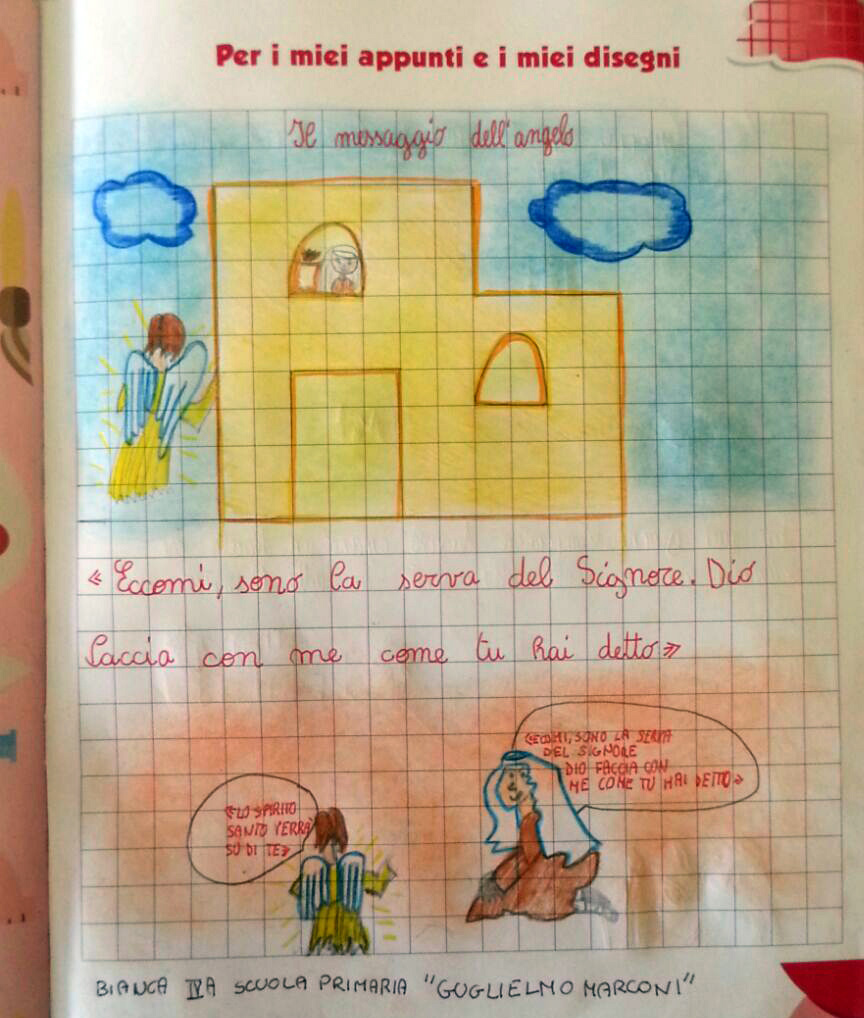 Per i miei appunti e i miei disegni
Il messaggio dell'angelo
« Eccomi, sono la serva del Signore. Dio
faccia con me come tu hai detto »
«ECCOMI, SONO LA SERVA
DEL SIGNORE
DIO FACCIA CON
ME COME TU HAI DETTO»
«LO SPIRITO
SANTO VERRÀ
SU DI TE»
BIANCA IVA SCUOLA PRIMARIA "GUGLIELMO MARCONI"